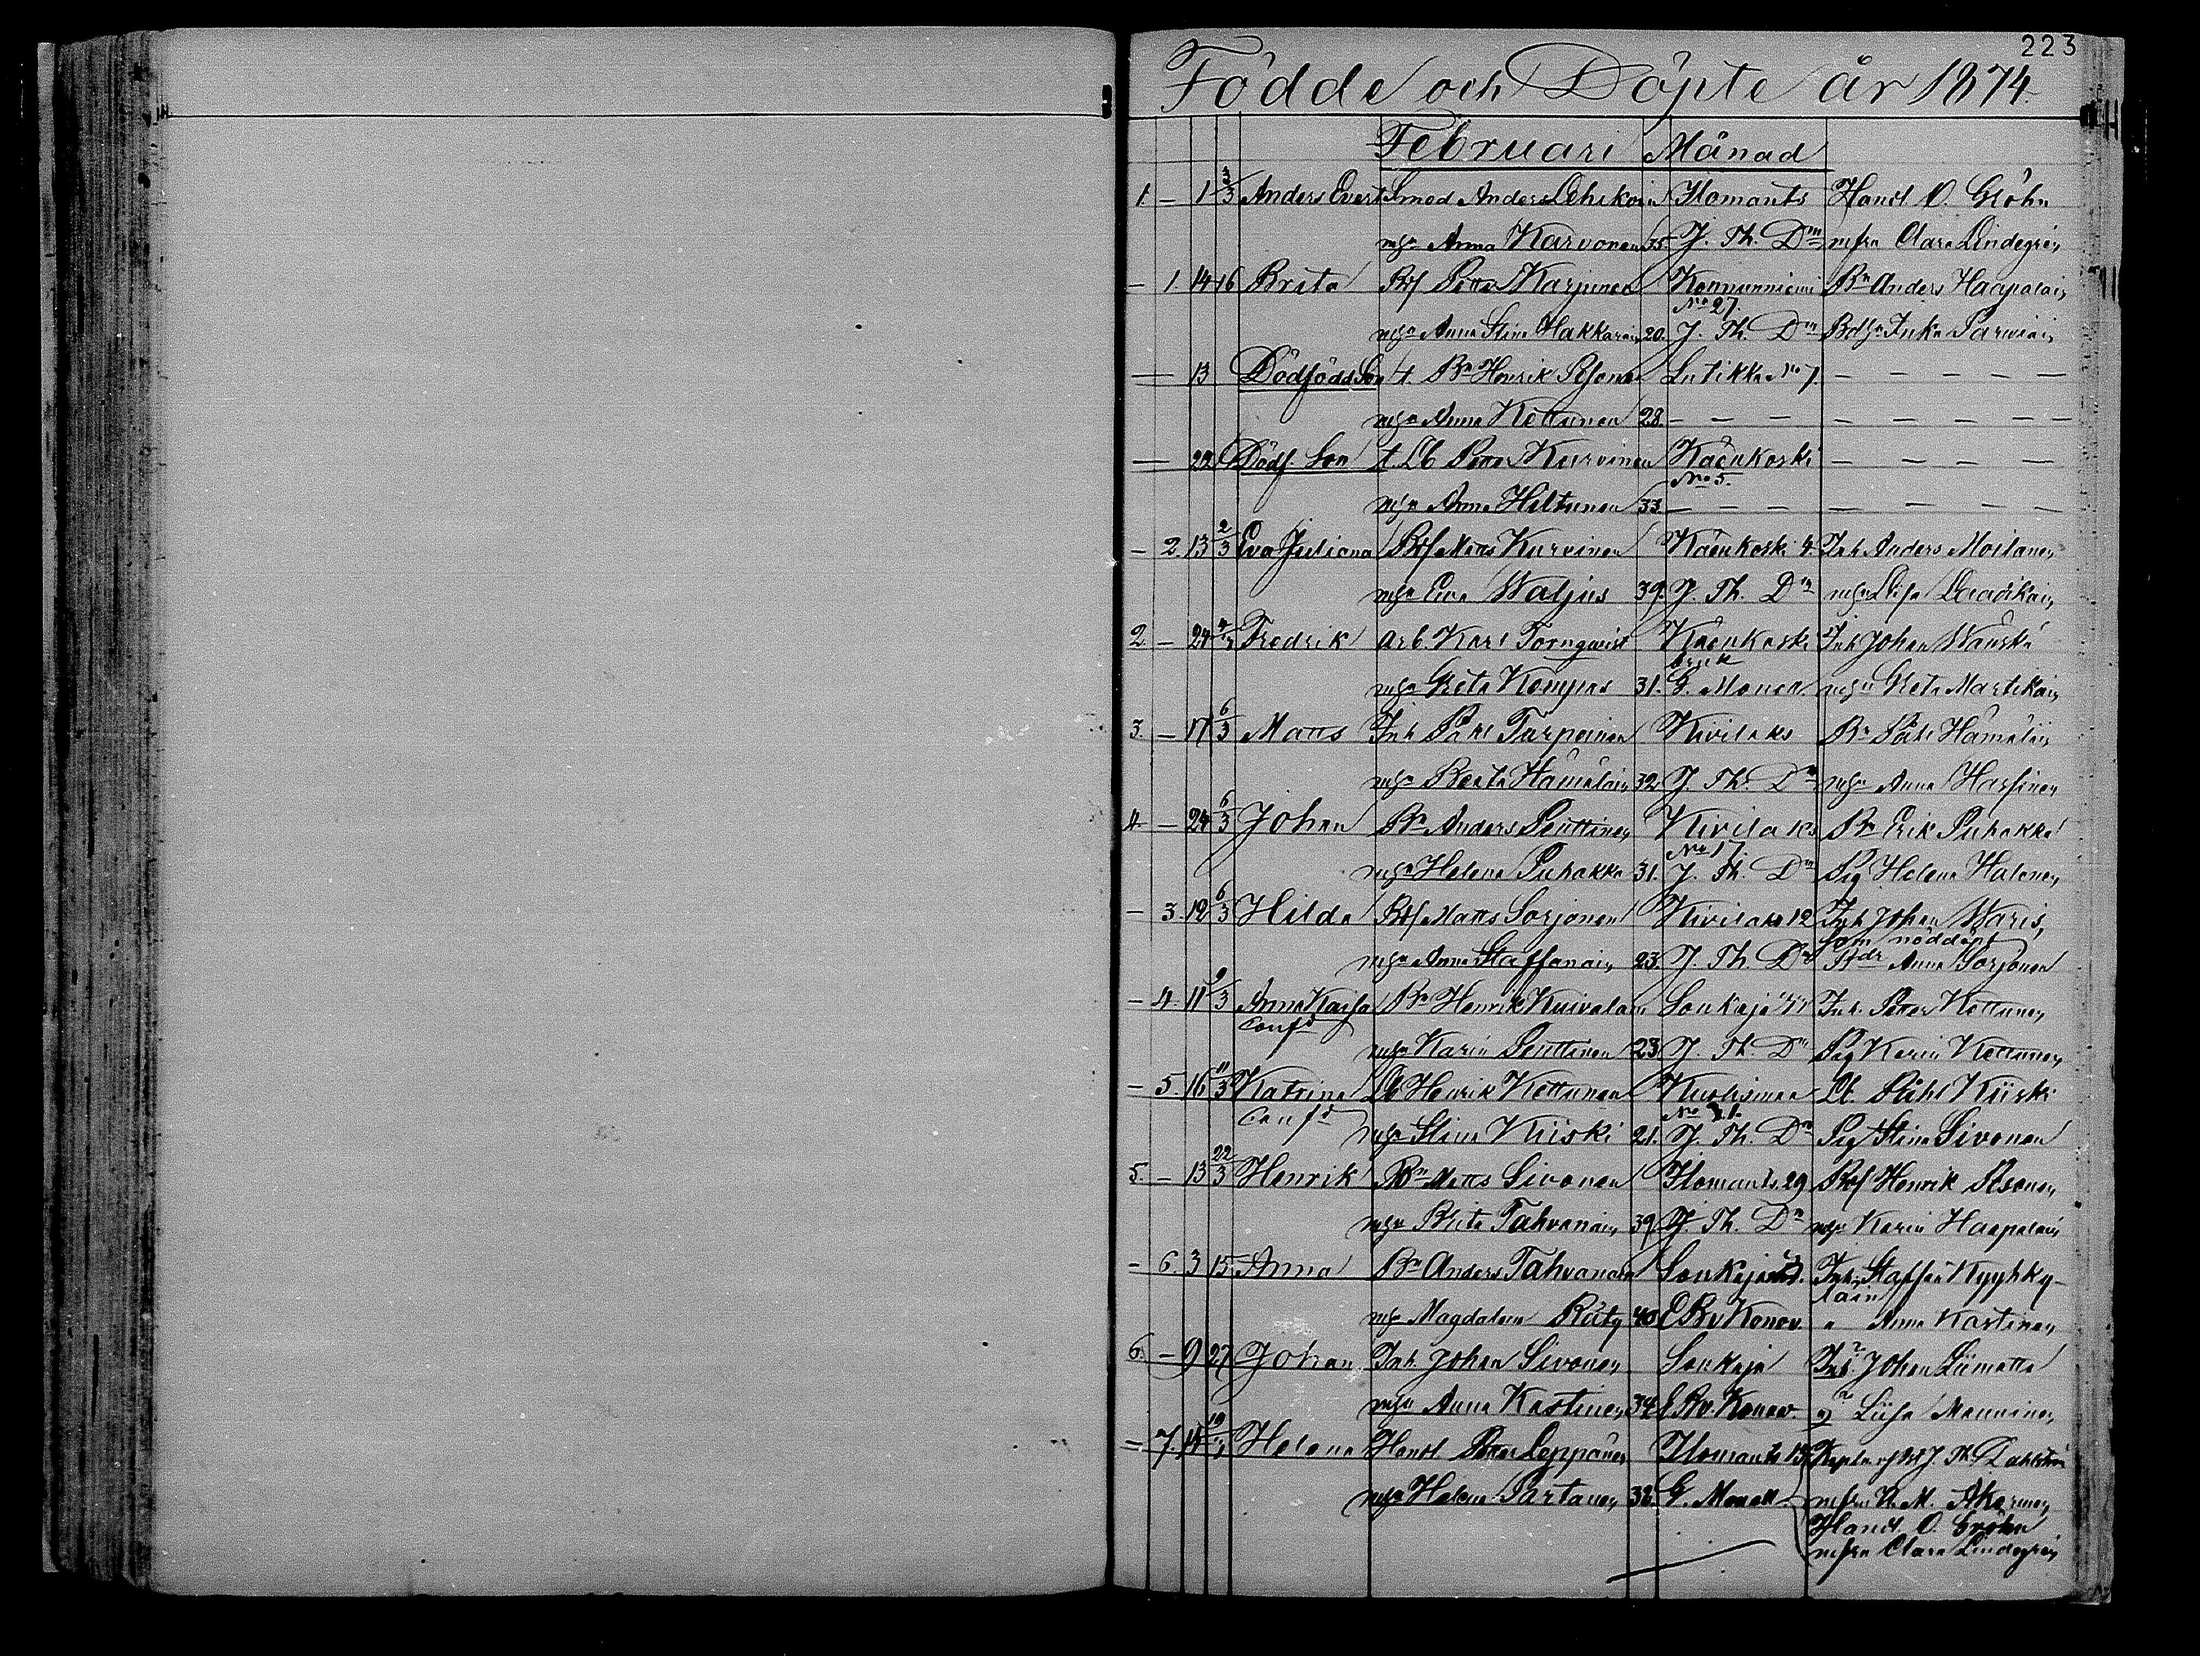 223
Födde och Döpte år 1874.
Februari Månad
1. — 1 3/3 Anders Evert Smed Anders Lehikoin Ilomants Handl O. Gröhn
mhu Anna Karvonen 35 J. Th. Dm mfru Clara Lindegrén
— 1. 14 16 Brita Bof Petter Karpinen Konnunniemi Bn Anders Haapalain
No 27.
mhu Anna Stina Hakkarain 20. J. Th. Dm Inka Parviain
— 13 Dödfödd Son t. Bn Henrik Ryönen Lutikka No 7. — — — — —
mhu Anna Kettunen 28. — — — — — — — —
— 22 Dödf. Son t. Lb Petter Kurvinen Käenkoski — — — —
No 5.
mhu Anna Hiltunen 33. — — — — — — — —
— 2. 13 2/3 Eva Juliana Bof Matts Kurvinen Käenkoski 4. Inh Anders Moilanen
mhu Eva Waljus 39. J. Th. Dm mhu Lisa
2. — 24 4/3 Fredrik Arb. Karl Tornqvist Käenkoski Inh Johan Wänskä
bruk
mhu Greta Kompas 31. G. Monell mhu Greta Martikain
3. — 17 6/3 Matts Inh Påhl Turpeinen Kivilaks Bn Påhl Hämäläin
mhu Brita Hämäläin 32. J. Th. Dm mhu Anna Hassinen
4. — 24 6/3 Johan Bn Anders Penttinen Kivilaks Bn Erik Puhakka
No 17.
mhu Helena Puhakka 31. J. Th. Dm Pig Helena Halonen
— 3. 12 6/3 Hilda Bof Matts Sorjonen Kivilaks 12 Inh Johan Waris,
som nöddöpt
mhu Anna Staffanain 23. J. Th. Dm Bdr Anna Sorjonen
— 4. 11 9/3 Anna Kaisa Bn Henrik Kuivalain Sonkaja Inh. Petter Kettunen
Confd
mhu Karin Penttinen 23. J. Th. Dm Pig Karin Kettunen
— 5. 16 11/3 Katrina Lb Henrik Kettunen Kuolismaa Lb. Påhl Kiiski
Confd No 21.
mhu Stina Kiiski 21. J. Th. Dm Pig Stina Sivonen
5. — 13 22/3 Henrik Bn Matts Sivonen Ilomants 29 Bof Henrik Asonen
mhu Brita Tahvanain 39. J. Th. Dm mhu Karin Haapalain
— 6. 3 15 Anna Bn Anders Tahvanain Sonkaja Inh. Staffan Kyyhky-
lain
mhu Magdalena Räty 40 E Bv Konov. " Anna Kastinen
6. — 9 27 Johan Inh. Johan Sivonen Sonkaja Inh. Johan Liimatta
mhu Anna Kastinen 34 E Bv. Konov. Liisa Manninen
— 7. Helena Handl. Petter Leppänen Ilomants 13 Kapln J. Th. Dahlström
mhu Helena Partanen 32. G. Monell mfru H. M. Åkerman
Handl. O. Gröhn
mfru Clara Lindegrén